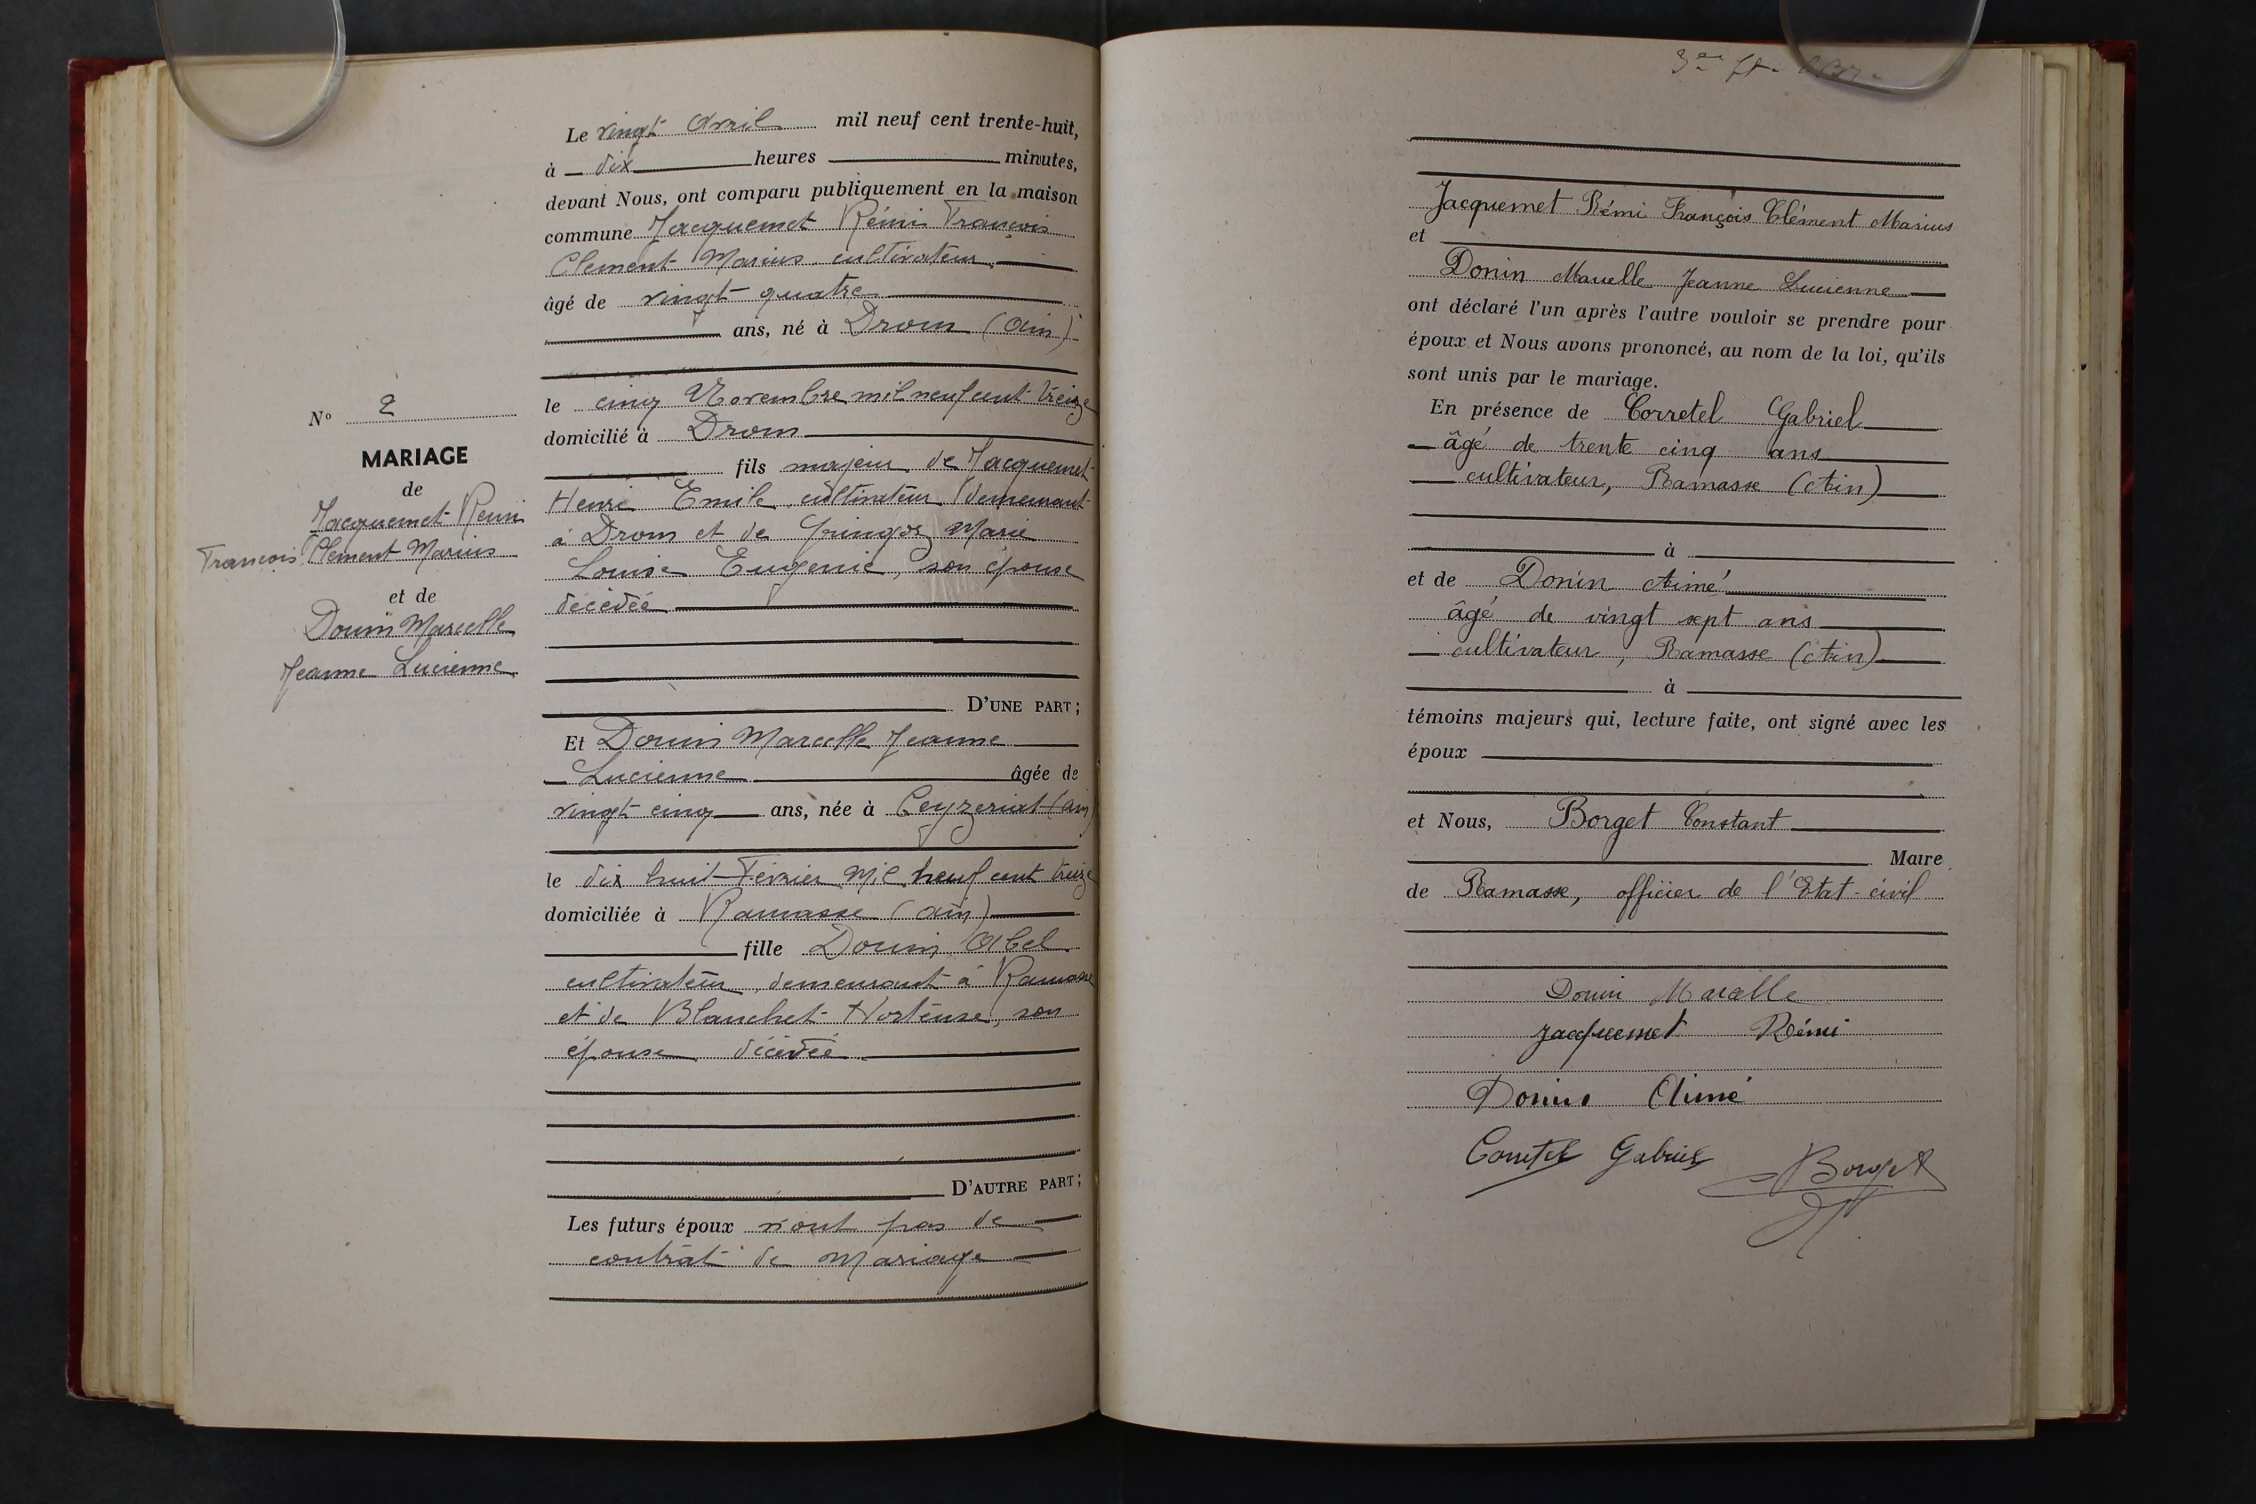 Le vingt Avril mil neuf cent trente-huit,
à dix heures minutes,
devant Nous, ont comparu publiquement en la maison
commune Jacquemet Rémi François
Clement Marius cultivateur,
âgé de vingt quatre
ans, né à Drom (Ain)
le cinq Novembre mil neuf cent treize
domicilié à Drom
fils majeur de Jacquemet
Henri Emile cultivateur demeurant
à Drom et de Marie
Louise Eugenie, son épouse
décédée
D'UNE PART;
Et Donin Marcelle Jeanne
Lucienne âgée de
vingt cinq ans, née à Ceyzeriat (Ain)
le dix huit Février Mil neuf cent treize
domiciliée à Ramasse (Ain)
fille Donin Abel
cultivateur, demeurant à Ramasse
et de Blanchet Hortense, son
épouse décédée
D'AUTRE PART;
Les futurs époux n'ont pas de
contrat de Mariage
N° 2
MARIAGE
de
Jacquemet Rémi
François Clement Marius
et de
Donin Marcelle
Jeanne Lucienne
Jacquemet Rémi François Clément Marius
et
Donin Marcelle Jeanne Lucienne
ont déclaré l'un après l'autre vouloir se prendre pour
époux et Nous avons prononcé, au nom de la loi, qu'ils
sont unis par le mariage.
En présence de Corretel Gabriel
âgé de trente cinq ans
cultivateur, Ramasse (Ain)
à
et de Donin Aimé
âgé de vingt sept ans
cultivateur, Ramasse (Ain)
à
témoins majeurs qui, lecture faite, ont signé avec les
époux
et Nous, Borget Constant
Maire
de Ramasse, officier de l'Etat-civil
Donin Marcelle
Jacquemet Rémi
Donin Aimé
Corretel Gabriel
Borget